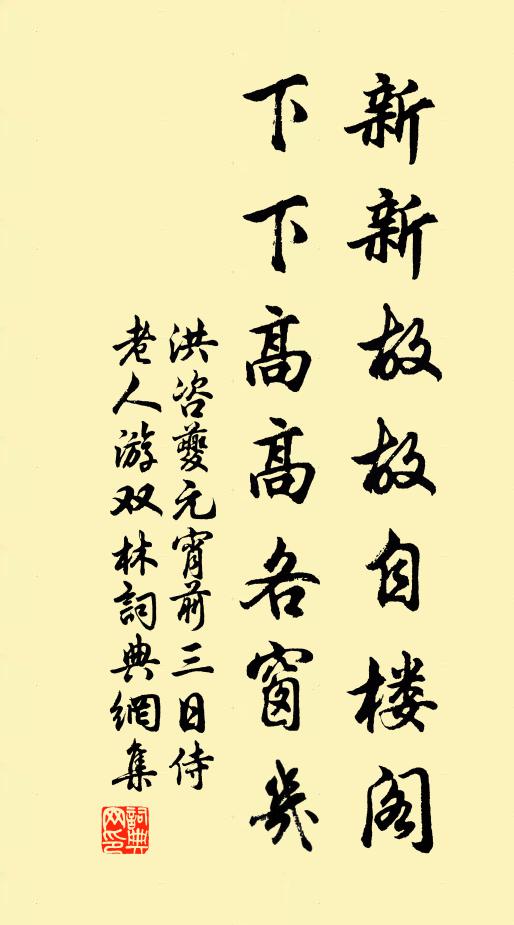 新新故故自楼阁
下下髙髙各窗幾
洪咨夔元宵前三日侍
老人游双林詞典網集
詞典网印